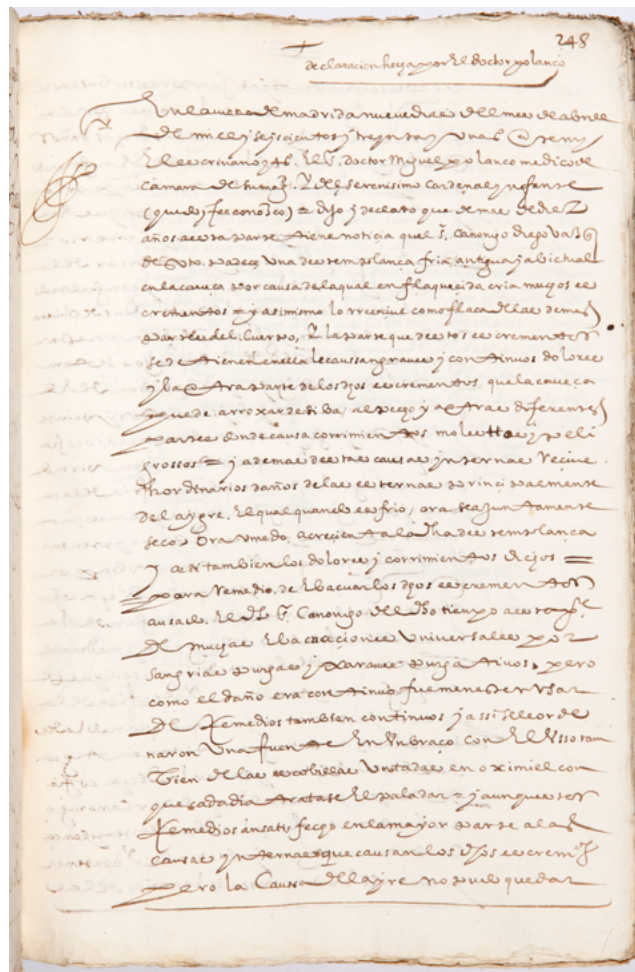 248
declaracion hecha por El doctor polanco
En la villa de madrid a nueve dias del mes de abrill
de mill y seiscientos y treynta y un as ante my
El escrivano y ts. El Sr. doctor Miguel polanco medico de
camara de su mag. Y del serenisimo cardenal ynfante
(que doy fee conozco) = dijo y declaro que de mas de diez
años a esta parte tiene noticia quel Sr. Canonigo diego
de Soto. padeçe Una destemplança fria, antigua y abitual
en la caveça por causa de la qual enflaquecida cria muchos es
crementos = y asimismo los rrecive como flaca de las demas
partes del Cuerpo, Y la parte que destos escrementos
se detienen en ella le caussan graves y continuos dolores
y la otra parte de los dhos escrementos que la caveça
puede arroxar de si ba, al pecho y otras diferentes
partes donde causa corrimientos molestos y peli
grossos = y ademas destas causas ynternas Recive
hordinarios daños de las esternas principalmente
del ayre, El qual quando es frio, ora sea juntamente
seco, Ora umedo, acrecienta la dha destemplança
y asi tambien los dolores y corrimientos dichos =
para Remedio, de Ebacuar los dhos escrementos
a usado. El dho Sr. Canonigo del dho tiempo a esta pte
de muchas Ebacuaciones Universales por
sangrias purgas y xaraves purgativos, pero
como el daño era continuo fue menester Usar
de Remedios tambien continuos y assi se le orde
naron Una fuente En Un braço con El Usso tam
bien de las escobillas Untadas en oximiel con
que cada dia tratase El paladar = y aunque estos
Remedios an satisfecho en la mayor parte a las
causas ynternas que causan los dhos escremtos
pero la Caussa del ayre no pudo quedar